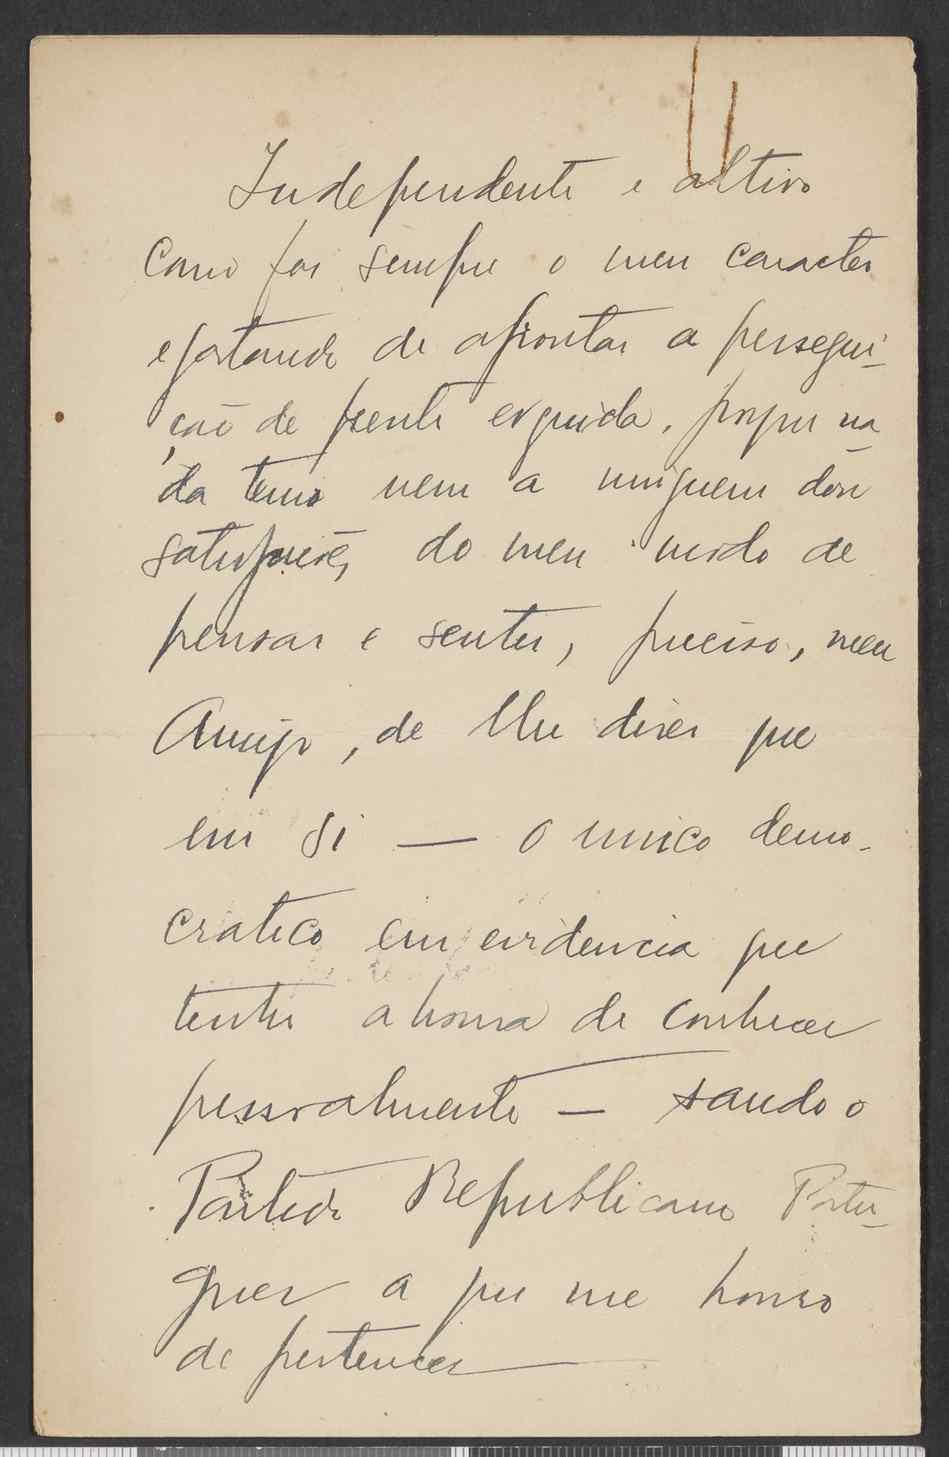 Independente e altivo
como foi sempre o meu caracter
e gostando de afrontar a persegui-
ção de frente erguida, porque na-
da temo nem a ninguem dou
satisfações do meu modo de
pensar e sentir, preciso, meu
Amigo, de lhe dizer que
em si — o unico demo-
cratico em evidencia que
tenho a honra de conhecer
pessoalmente — saudo o
Partido Republicano Portu-
guez a que me honro
de pertencer